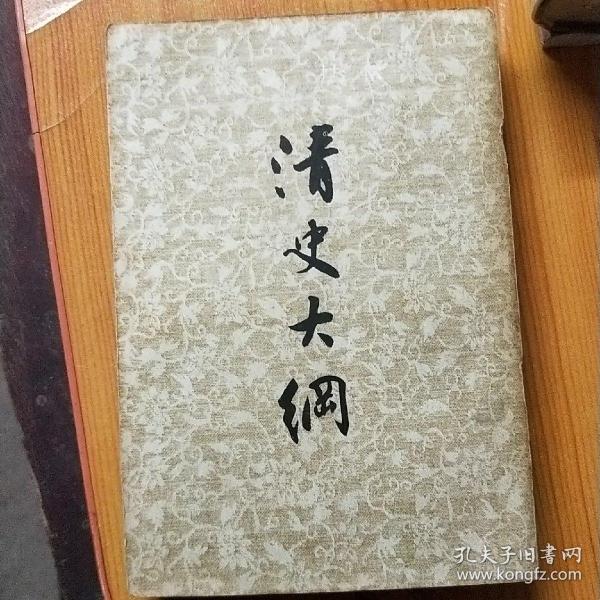 清史大綱
孔夫子旧書网
www.kongfz.com